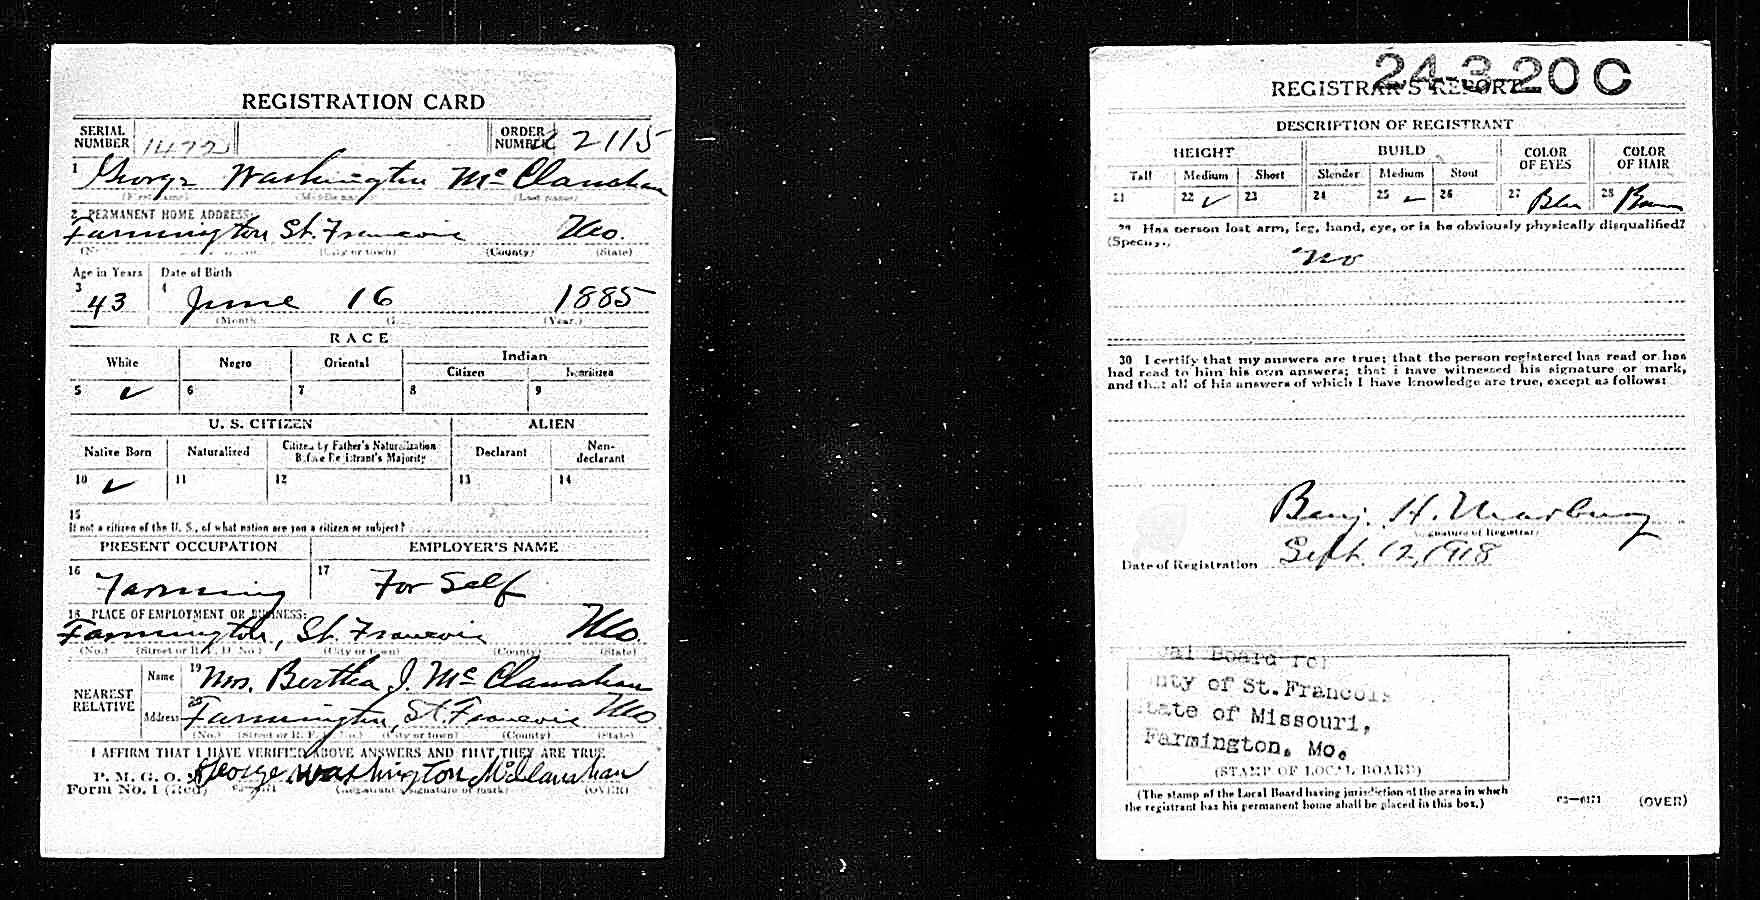 REGISTRATION CARD
SERIAL NUMBER 1472 ORDER NUMBER 2115
1 George Washington McClanahan
(First name) (Middle name) (Last name)
2 PERMANENT HOME ADDRESS:
Farmington St. Francois Mo.
(No.) (City or town) (County) (State)
Age in Years Date of Birth
3 43 4 June 16 1885
(Month.) (Year.)
RACE
White Negro Oriental Indian
Citizen Noncitizen
5 ✓ 6 7 8 9
U. S. CITIZEN ALIEN
Native Born Naturalized Citizen by Father's Naturalization Before Registrant's Majority Declarant Non-declarant
10 ✓ 11 12 13 14
15
If not a citizen of the U. S., of what nation are you a citizen or subject?
PRESENT OCCUPATION EMPLOYER'S NAME
16 Farming 17 For Self
18 PLACE OF EMPLOYMENT OR BUSINESS:
Farmington, St. Francois Mo.
(No.) (Street or R. F. D. No.) (City or town) (County) (State)
NEAREST RELATIVE
Name 19 Mrs. Bertha J. McClanahan
Address 20 Farmington St. Francois Mo
(No.) (Street or R. F. D. No.) (City or town) (County) (State)
I AFFIRM THAT I HAVE VERIFIED ABOVE ANSWERS AND THAT THEY ARE TRUE
P. M. G. O. George Washington McClanahan
Form No. 1 (Red) (Registrant's signature or mark) (OVER)
24-3-20 C
REGISTRAR'S REPORT
DESCRIPTION OF REGISTRANT
HEIGHT BUILD COLOR OF EYES COLOR OF HAIR
Tall Medium Short Slender Medium Stout
21 22 ✓ 23 24 25 ✓ 26 27 Blue 28 Brown
29 Has person lost arm, leg, hand, eye, or is he obviously physically disqualified?
(Specify.)
no
30 I certify that my answers are true; that the person registered has read or has
had read to him his own answers; that I have witnessed his signature or mark,
and that all of his answers of which I have knowledge are true, except as follows:
Benj. H. Marbury
(Signature of Registrar)
Date of Registration Sept. 12, 1918
Local Board for
County of St. Francois
State of Missouri,
Farmington, Mo.
(STAMP OF LOCAL BOARD)
(The stamp of the Local Board having jurisdiction of the area in which
the registrant has his permanent home shall be placed in this box.)
03—6171 (OVER)